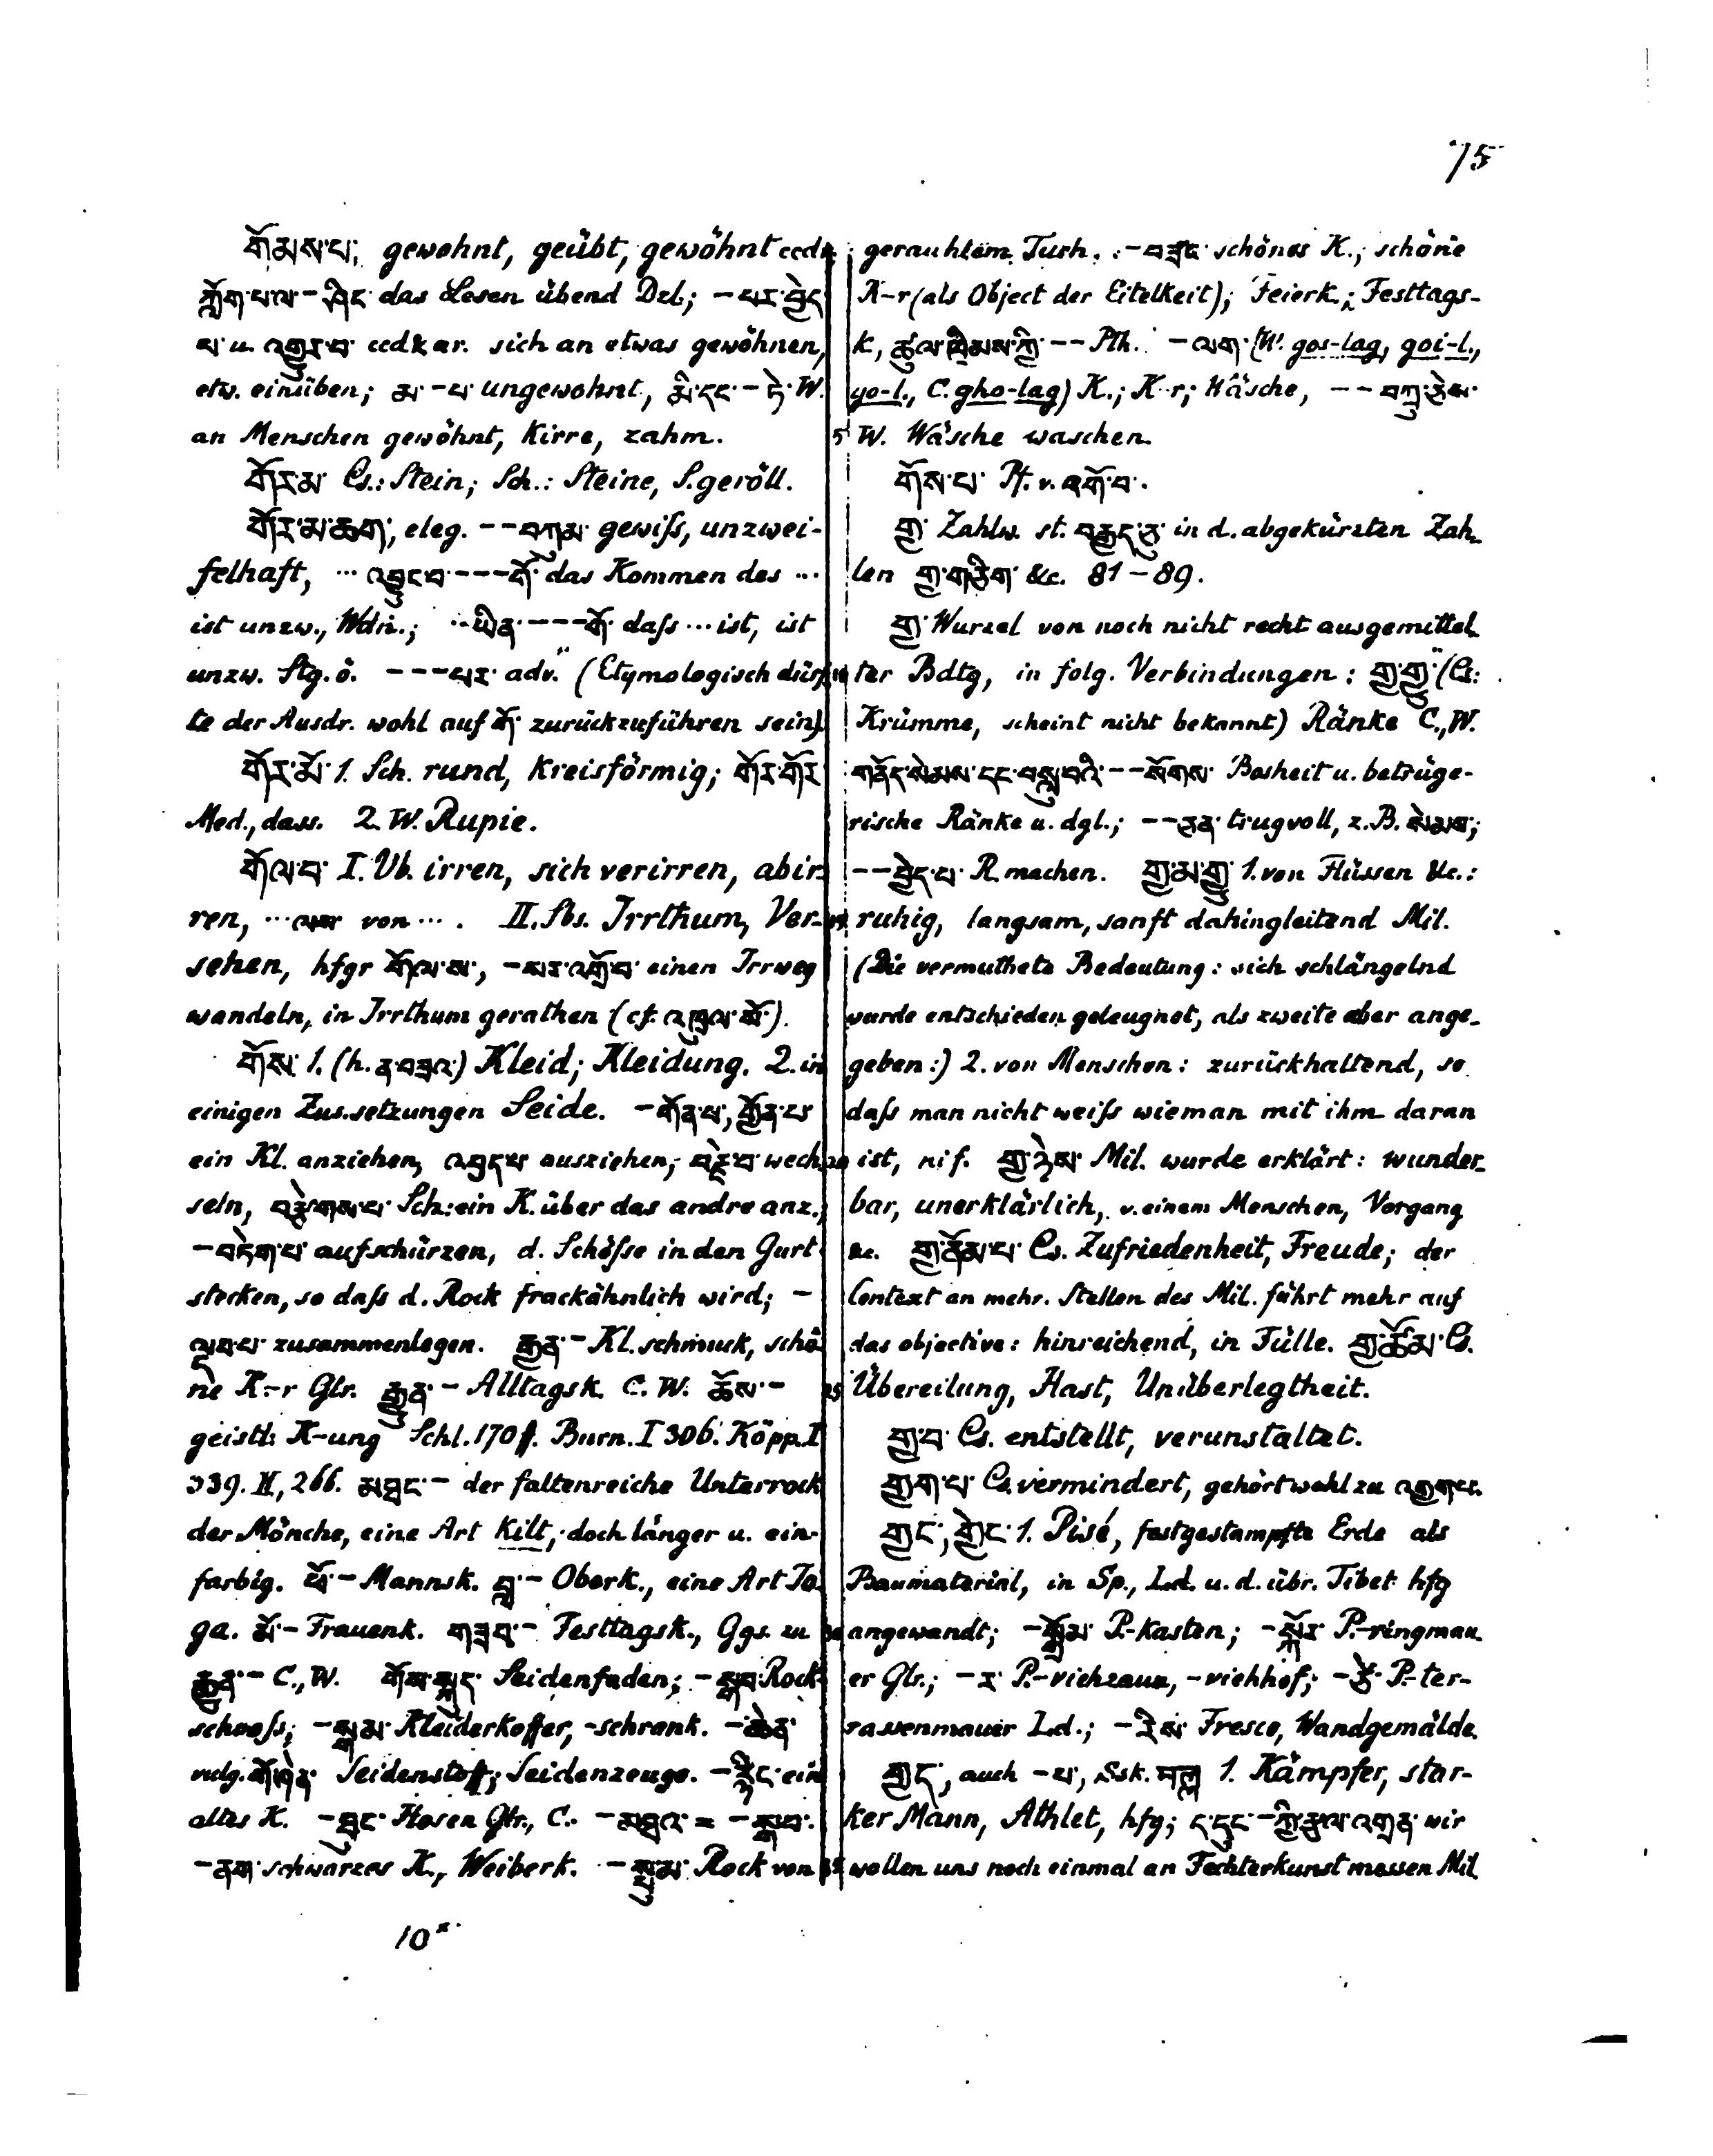 75
གོམས་པ་, gewohnt, geübt, gewöhnt ccdr
ཀློག་པ་ལ་ – ཤིང་ das Lesen übend Dzl; – པར་བྱེད་
པ་ u. འགྱུར་བ་ ccdar. sich an etwas gewöhnen,
etw. einüben; མ་ – པ་ ungewohnt, མི་དང་ – ཏེ་ W.
an Menschen gewöhnt, kirre, zahm.
གོར་མ་ Cs.: Stein; Sch.: Steine, S.geröll.
གོར་མ་ཆག་, eleg. – – བཀམ་ gewiſs, unzwei-
felhaft, ... འབྱུང་བ་ – – – གོ་ das Kommen des ...
ist unzw., Wdn.; ... ཡིན་ – – – གོ་ daſs ... ist, ist
unzw. Stg. ö. – – – པར་ adv. (Etymologisch dürf
te der Ausdr. wohl auf གོ་ zurückzuführen sein).
གོར་མོ་ 1. Sch. rund, kreisförmig; གོར་གོར་
Med., dass. 2. W. Rupie.
གོལ་བ་ I. Vb. irren, sich verirren, abir-
ren, ... ལས་ von .... II. Sbs. Irrthum, Ver-
sehen, hfgr གོལ་ས་, – སར་འགྲོ་བ་ einen Irrweg
wandeln, in Irrthum gerathen (cf. འཁྲུལ་སོ་).
གོས་ 1. (h. ན་བཟའ་) Kleid; Kleidung. 2. in
einigen Zus.setzungen Seide. – གོན་པ་, གྱོན་པ་
ein Kl. anziehen, འབུད་པ་ ausziehen, བརྗེ་བ་ wech
seln, བརྩེགས་པ་ Sch.: ein K. über das andre anz.;
– བརྟེག་པ་ aufschürzen, d. Schöſse in den Gurt
stecken, so daſs d. Rock frackähnlich wird; –
ལྟབ་པ་ zusammenlegen. རྒྱན་ – Kl. schmuck, schö-
ne K-r Glr. རྒྱུན་ – Alltagsk. C. W. ཆོས་ –
geistl. K-ung Schl. 170 ff. Burn. I 306. Köpp. I
339. II, 266. མཐང་ – der faltenreiche Unterrock
der Mönche, eine Art Kilt, doch länger u. ein-
farbig. ཕོ་ – Mannsk. བླ་ – Oberk., eine Art To-
ga. མོ་ – Frauenk. གཟབ་ – Festtagsk., Ggs. zu
རྒྱུན་ – C., W. གོས་སྐུད་ Seidenfaden; – སྒབ་ Rock-
schooſs; – སྒམ་ Kleiderkoffer, -schrank. – ཆེན་
vulg. གོ་ཅེན་ Seidenstoff; Seidenzeuge. – རྙིང་ ein
altes K. – ཐུང་ Hosen Glr., C. – མཐའ་ = – སྒབ་.
– ནག་ schwarzes K., Weiberk. – སྣམ་ Rock von
10*
gerauhtem Tuch. – བཟང་ schönes K.; schöne
K-r (als Object der Eitelkeit); Feierk.; Festtags-
k, ཚུལ་ཁྲིམས་ཀྱི་ – – Pth. – ལག་ (W. gos-lag, goi-l.,
go-l., C. gho-lag) K.; K-r; Wäsche, – – བཀྲུ་ཅེས་
5 W. Wäsche waschen.
གོས་པ་ Pf. v. བགོ་བ་.
གྱ་ Zahlw. st. བརྒྱད་ཅུ་ in d. abgekürzten Zah-
len གྱ་གཅིག་ &c. 81 – 89.
གྱ་ Wurzel von noch nicht recht ausgemittel-
ter Bdtg, in folg. Verbindungen: གྱ་གྱུ་ (Cs:
Krümme, scheint nicht bekannt) Ränke C., W.
གནོད་སེམས་དང་བསླུ་བའི་ – – སོགས་ Bosheit u. betrüge-
rische Ränke u. dgl.; – – ཅན་ trugvoll, z. B. སེམས་;
– – བྱེད་པ་ R. machen. གྱ་མ་གྱུ་ 1. von Flüssen &c.:
ruhig, langsam, sanft dahingleitend Mil.
(Die vermuthete Bedeutung: sich schlängelnd
wurde entschieden geleugnet, als zweite aber ange-
geben:) 2. von Menschen: zurückhaltend, so
daſs man nicht weiſs wie man mit ihm daran
20 ist, nif. གྱ་ཉེས་ Mil. wurde erklärt: wunder-
bar, unerklärlich, v. einem Menschen, Vorgang
&c. གྱ་ནོམ་པ་ Cs. Zufriedenheit, Freude; der
Context an mehr. Stellen des Mil. führt mehr auf
das objective: hinreichend, in Fülle. གྱ་ཚོམ་ Cs.
25 Übereilung, Hast, Unüberlegtheit.
གྱ་བ་ Cs. entstellt, verunstaltet.
གྱག་པ་ Cs. vermindert, gehört wohl zu འགྱག་པ་.
གྱང་, གྱེང་ 1. Pisé, festgestampfte Erde als
Baumaterial, in Sp., Ld. u. d. übr. Tibet hfg
30 angewandt; – སྒྲོམ་ P.-kasten; – སྐོར་ P.-ringmau-
er Glr.; – ར་ P.-viehzaun, -viehhof; – རྩེ་ P.-ter-
rassenmauer Ld.; – རིས་ Fresco, Wandgemälde.
གྱད་, auch – པ་, Ssk. मल्ल 1. Kämpfer, star-
ker Mann, Athlet, hfg; ད་དུང་ – ཀྱི་རྩལ་འགྲན་ wir
35 wollen uns noch einmal an Fechterkunst messen Mil.